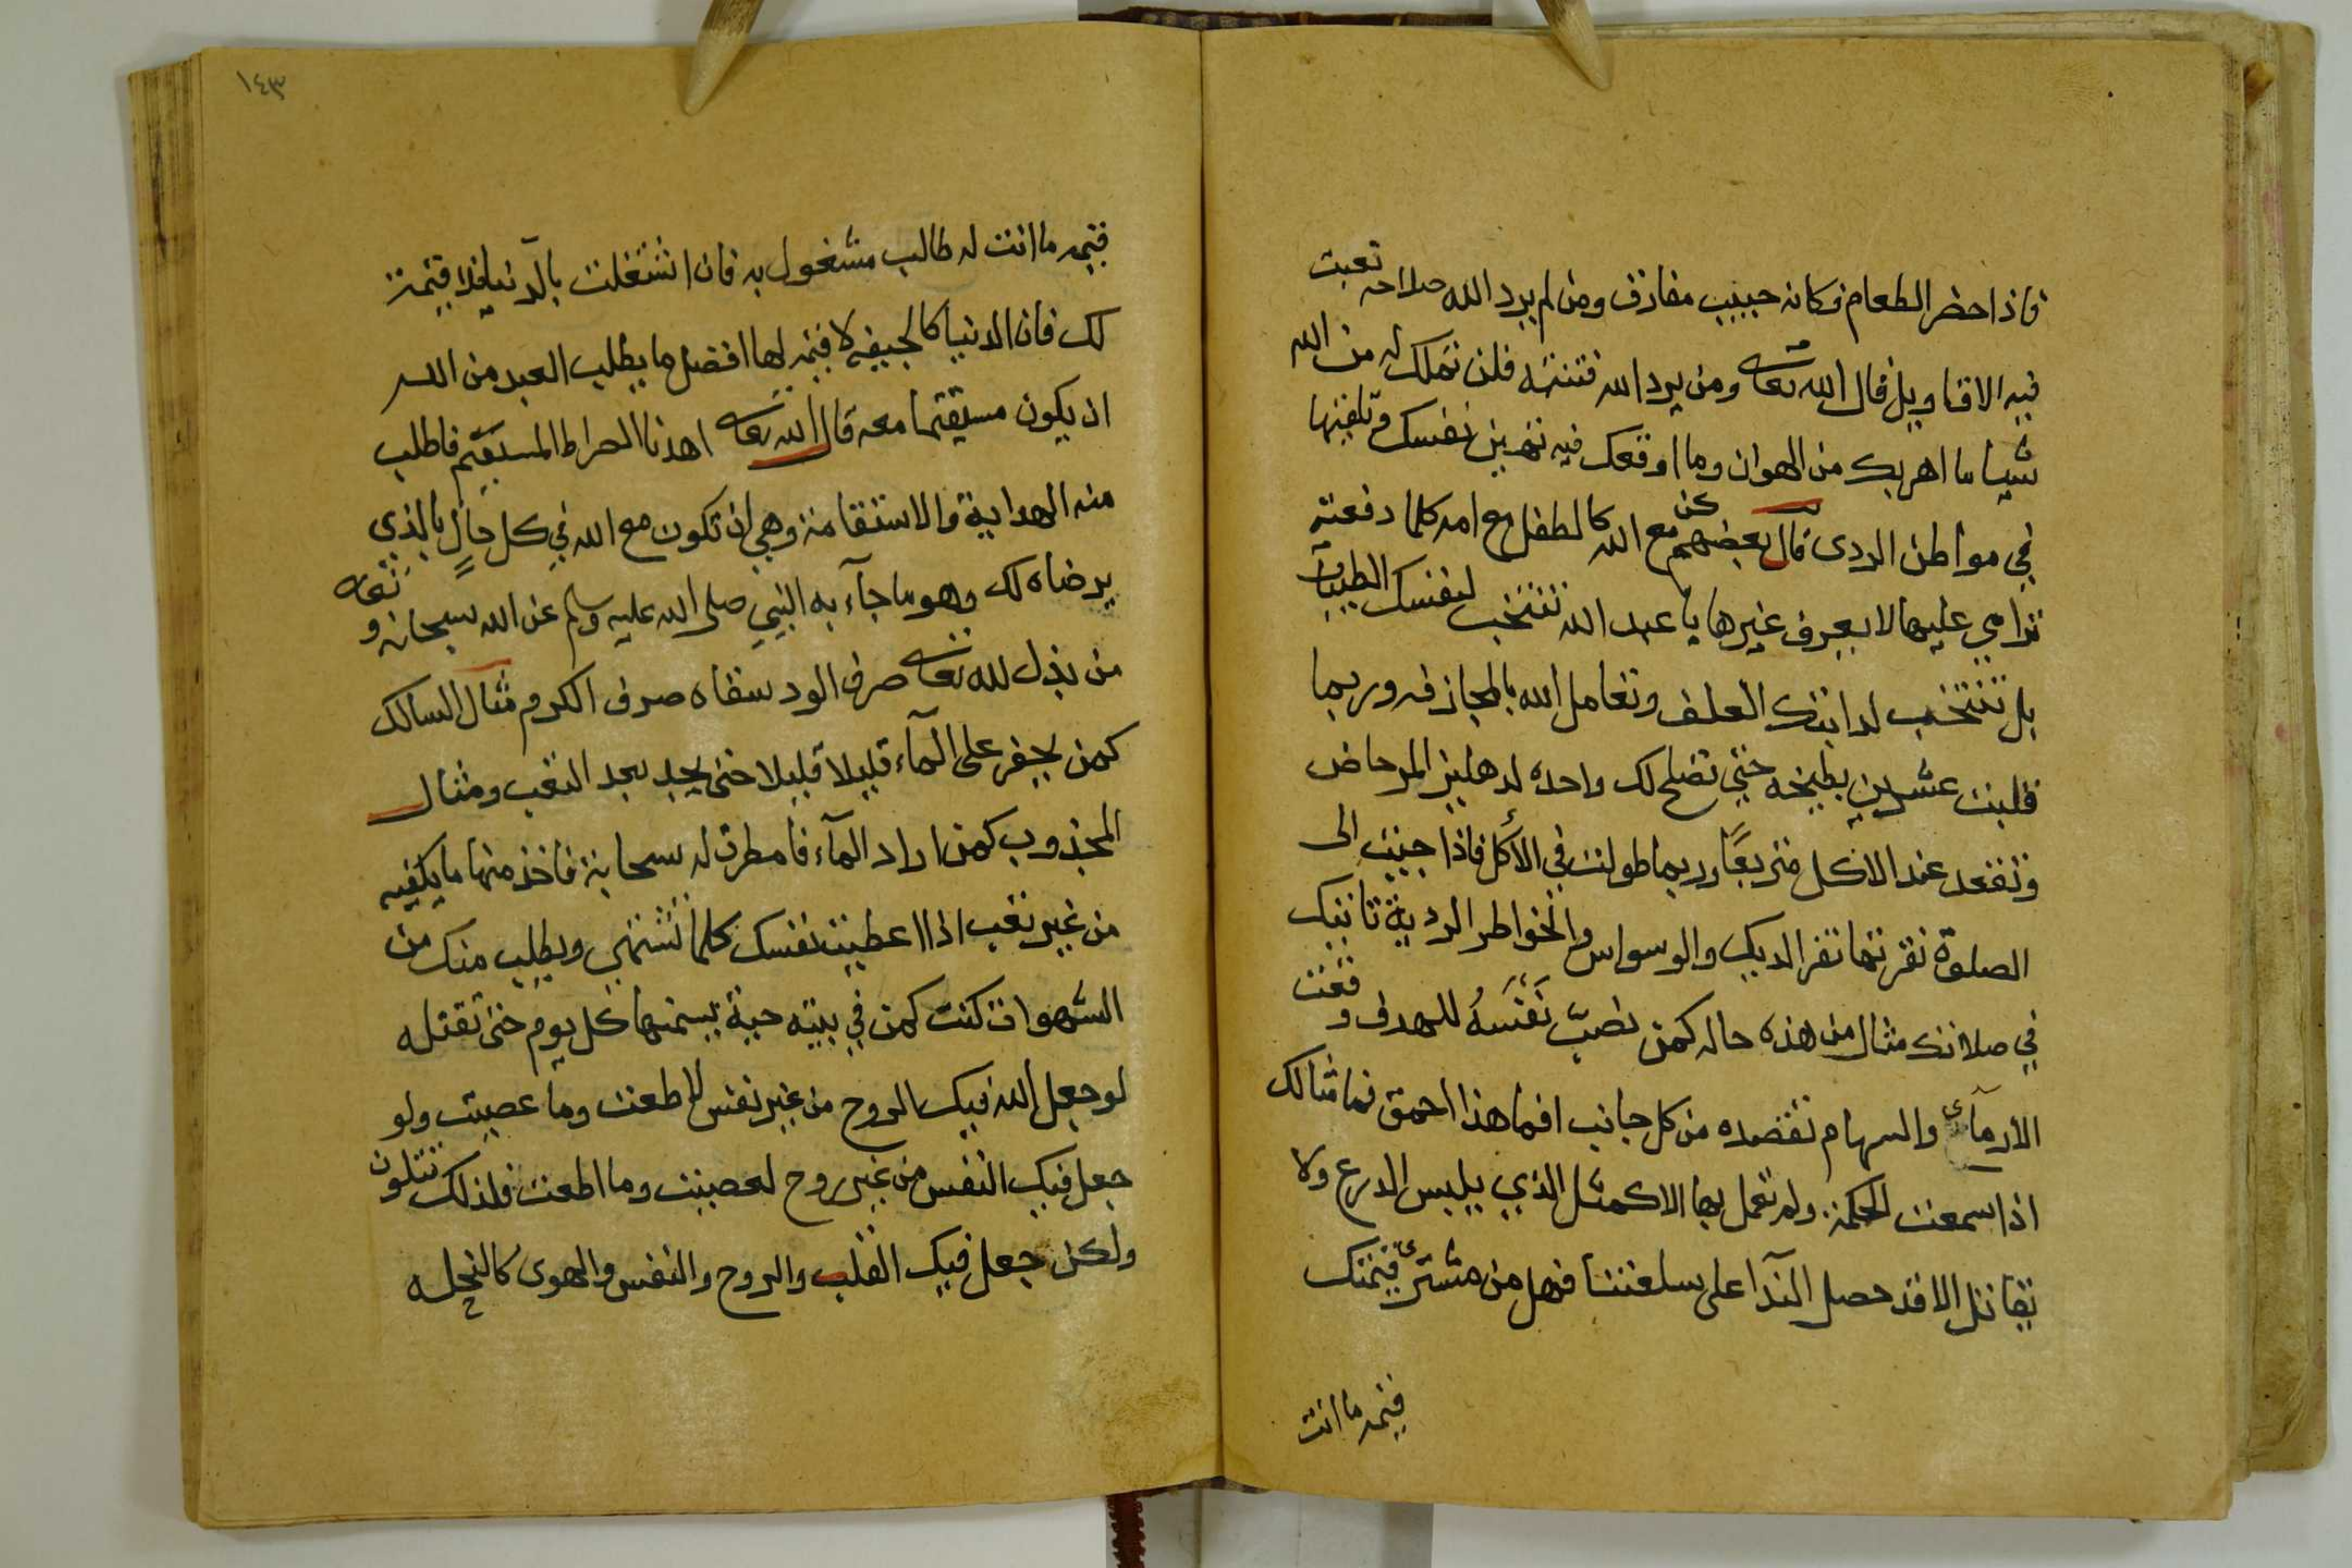 فاذا حضر الطعام فكانه حبيب مفارق ومن لم يرد الله صلاحه تعبت
فيه الاقاويل قال الله تعالى ومن يرد الله فتنته فلن تملك له من الله
شيا ما اهربك من الهوان وما اوقعك فيه تهين نفسك وتلقيها
في مواطن الردى قال بعضهم كن مع الله كالطفل مع امه كلما دفعته
ترامي عليها لا يعرف غيرها يا عبد الله تنتخب لنفسك الطيبات
بل تنتخب لدابتك العلف وتعامل الله بالمجازفه وربما
قلبت عشرين بطيخه حتي تصلح لك واحده لدهليز المرحاض
وتقعد عند الاكل متربعًا وربما طولت في الأكل فاذا جيت الى
الصلوة نقرتها نقر الديك والوسواس والخواطر الردية تاتيك
في صلاتك مثال من هذه حاله كمن نصبّ نَفْسَهُ للهدف وقعت
الارمآئ والسهام تقصده من كل جانب افما هذا احمق فما مثالك
اذا سمعت الحكمة ولم تعمل بها الا كمثل الذي يلبس الدرع ولا
يقاتل الا قد حصل الندآ على سلعتنا فهل من مشترئ قيمتك
قيمه ما انت
١٤٣
قيمه ما انت له طالب مشغول به فان اشتغلت بالدنيا فلا قيمة
لك فان الدنيا كالجيفه لا قيمه لها افضل ما يطلب العبد من الله
ان يكون مستقيما معه قال الله تعالى اهدنا الصراط المستقيم فاطلب
منه الهداية والاستقامة وهي ان تكون مع الله في كل حالٍ بالذي
يرضاه لك وهو ما جآء به النبي صلى الله عليه وسلم عن الله سبحانه وتعالى
من بذل لله تعالى صرف الود سقاه صرف الكرم مثال السالك
كمن يحفر على المآء قليلا قليلا حتى يجد بعد التعب ومثال
المجذوب كمن اراد المآء فامطرت له سحابة فاخذ منها ما يكفيه
من غير تعب اذا اعطيت نفسك كلما تشتهي ويطلب منك من
الشهوات كنت كمن في بيته حية يسمنها كل يوم حتى تقتله
لو جعل الله فيك الروح من غير نفس لاطعت وما عصيت ولو
جعل فيك النفس من غير روح لعصيت وما اطعت فلذلك تتلون
ولكن جعل فيك القلب والروح والنفس والهوى كالنحله